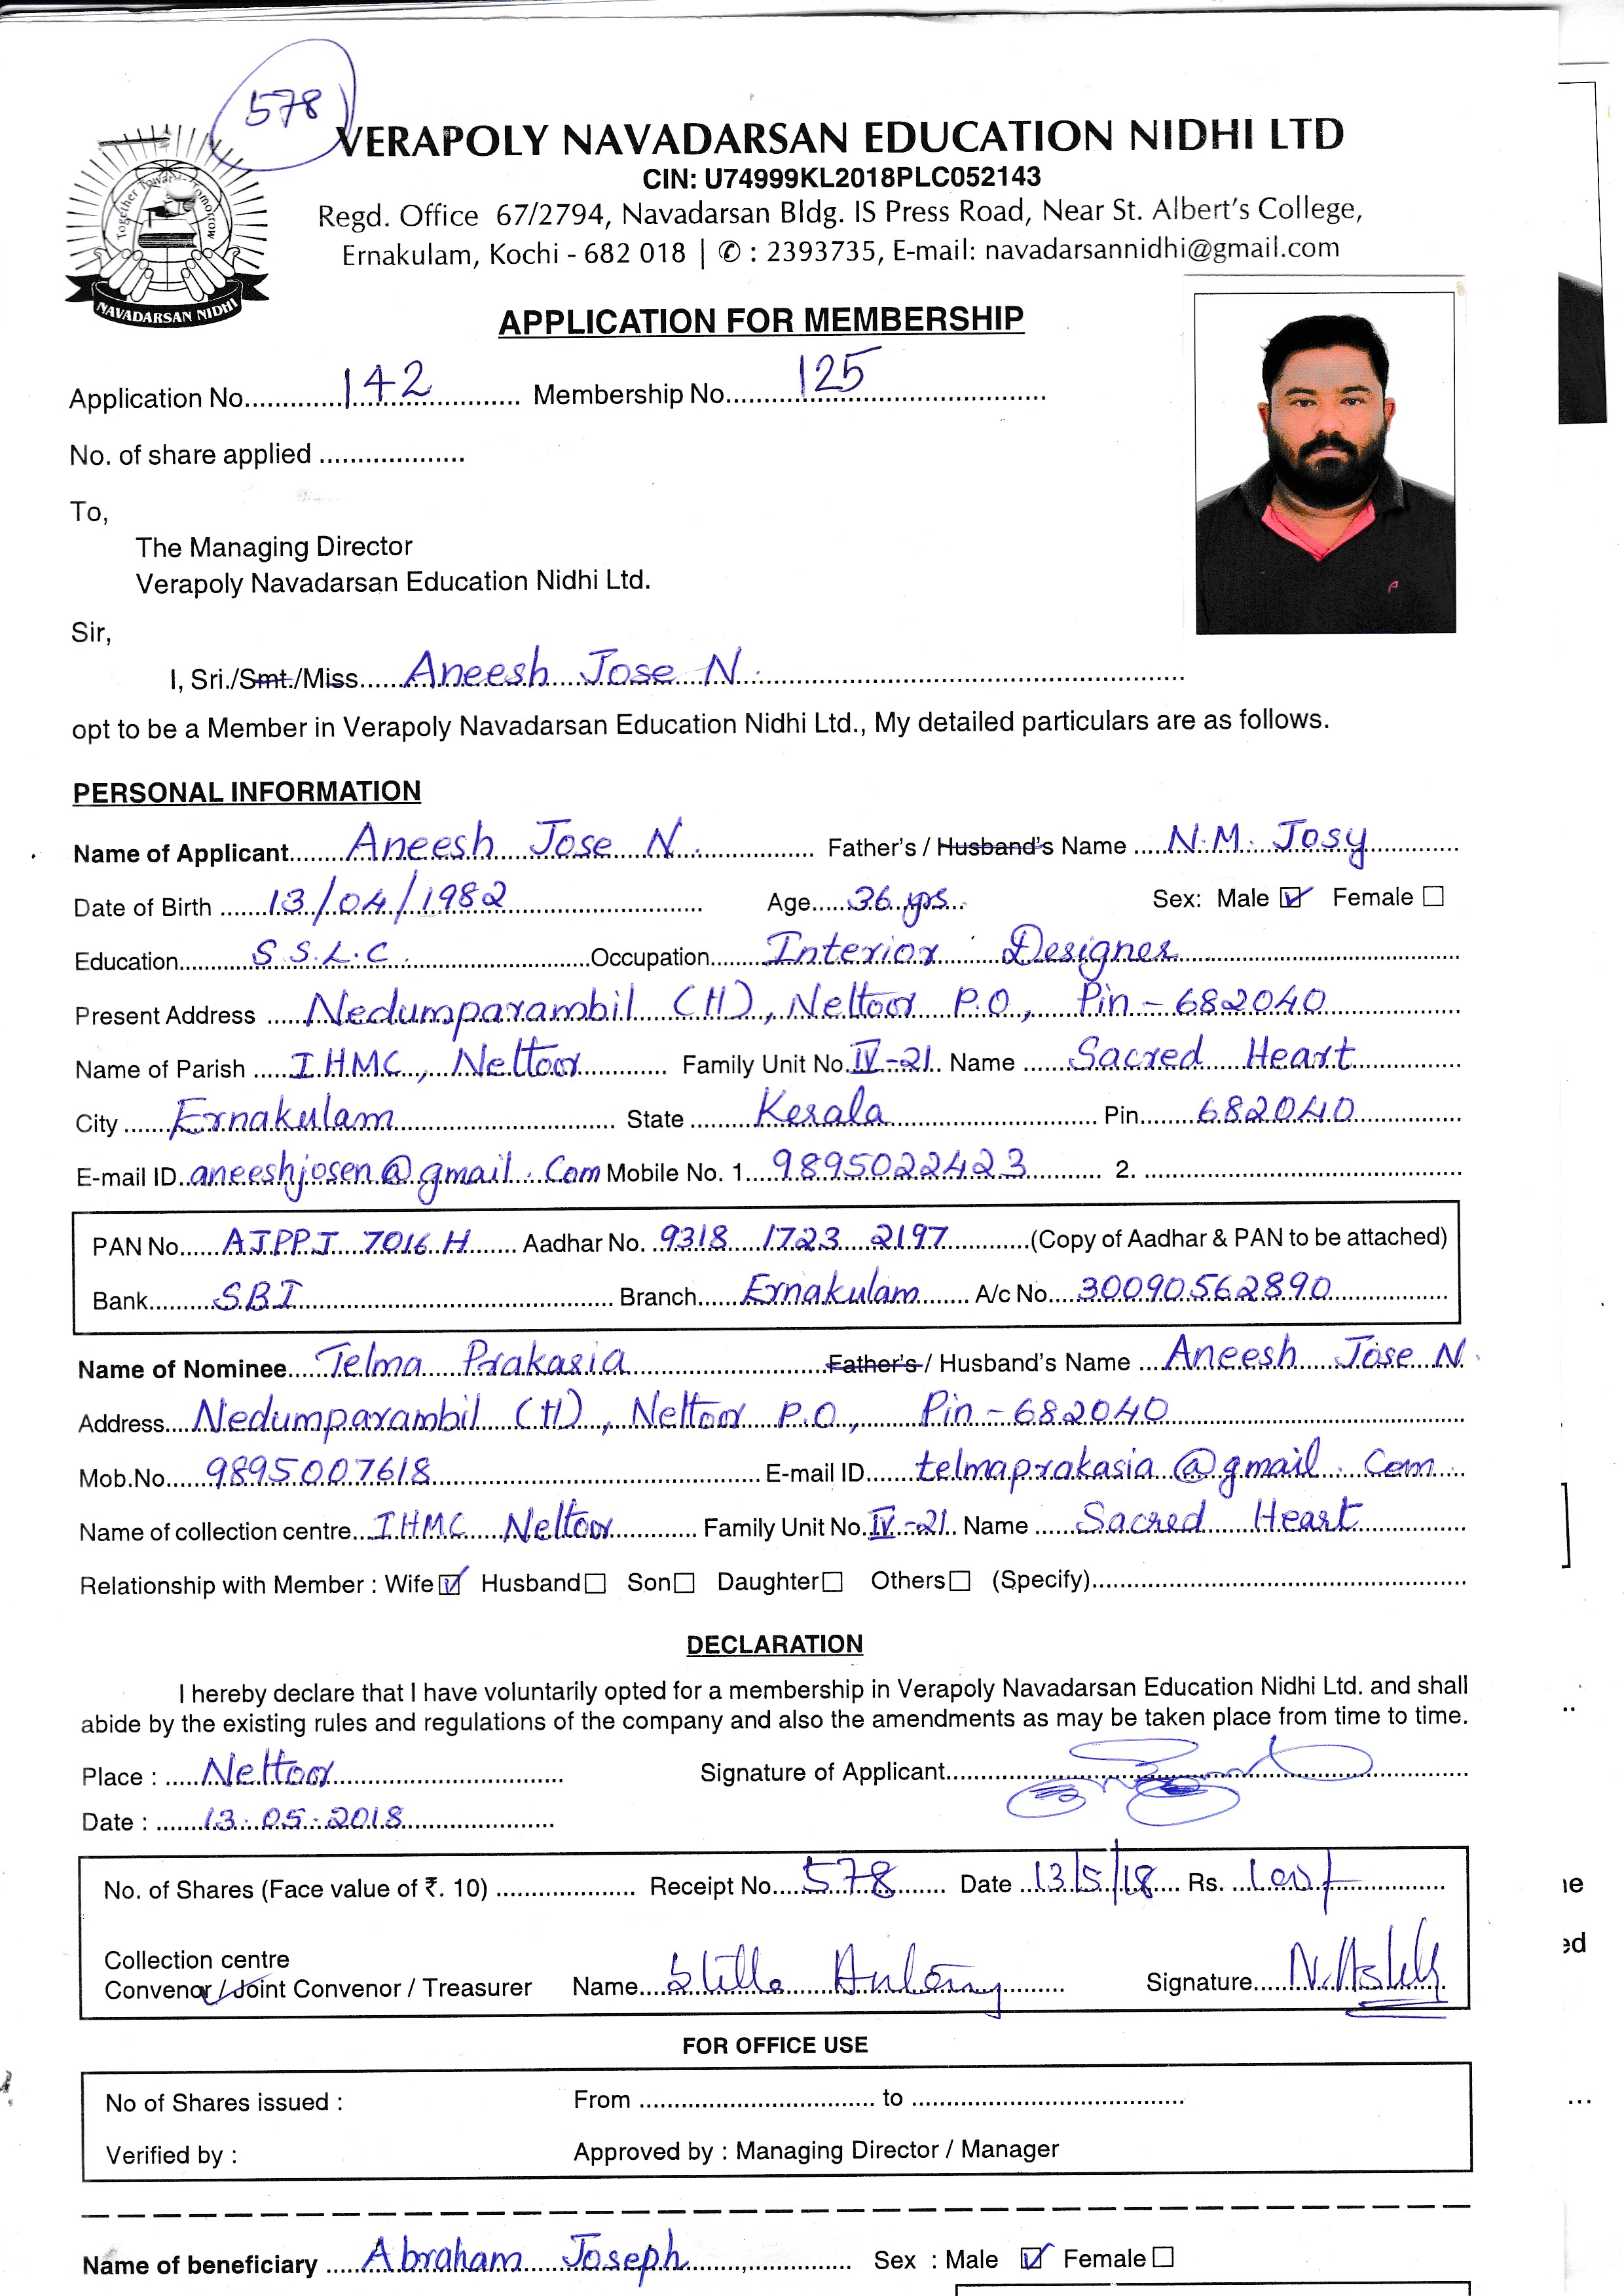 578
VERAPOLY NAVADARSAN EDUCATION NIDHI LTD
CIN: U74999KL2018PLC052143
Regd. Office 67/2794, Navadarsan Bldg. IS Press Road, Near St. Albert's College,
Ernakulam, Kochi - 682 018 | ✆ : 2393735, E-mail: navadarsannidhi@gmail.com
Together Towards Tomorrow
NAVADARSAN NIDHI
APPLICATION FOR MEMBERSHIP
Application No. 142 Membership No. 125
No. of share applied ...................
To,
The Managing Director
Verapoly Navadarsan Education Nidhi Ltd.
Sir,
I, Sri./Smt./Miss Aneesh Jose N.
opt to be a Member in Verapoly Navadarsan Education Nidhi Ltd., My detailed particulars are as follows.
PERSONAL INFORMATION
Name of Applicant Aneesh Jose N. Father's / Husband's Name N.M. Josy
Date of Birth 13/04/1982 Age 36 yrs. Sex: Male ☑ Female ☐
Education S.S.L.C. Occupation Interior Designer
Present Address Nedumparambil (H), Nettoor P.O, Pin - 682040
Name of Parish IHMC, Nettoor Family Unit No. IV-21. Name Sacred Heart
City Ernakulam State Kerala Pin 682040
E-mail ID aneeshjosen@gmail.Com Mobile No. 1. 9895022423 2.
PAN No. AJPPJ 7016 H Aadhar No. 9318 1723 2197 (Copy of Aadhar & PAN to be attached)
Bank SBI Branch Ernakulam A/c No. 30090562890
Name of Nominee Telma Prakasia Father's / Husband's Name Aneesh Jose N.
Address Nedumparambil (H), Nettoor P.O, Pin - 682040
Mob.No. 9895007618 E-mail ID telmaprakasia@gmail.Com
Name of collection centre IHMC Nettoor Family Unit No. IV-21. Name Sacred Heart
Relationship with Member : Wife ☑ Husband ☐ Son ☐ Daughter ☐ Others ☐ (Specify)
DECLARATION
I hereby declare that I have voluntarily opted for a membership in Verapoly Navadarsan Education Nidhi Ltd. and shall
abide by the existing rules and regulations of the company and also the amendments as may be taken place from time to time.
Place : Nettoor Signature of Applicant
Date : 13.05.2018
No. of Shares (Face value of ₹. 10) Receipt No. 578 Date 13/5/18 Rs. 100/-
Collection centre
Convenor / Joint Convenor / Treasurer Name Stilla Antony Signature
FOR OFFICE USE
No of Shares issued : From to
Verified by : Approved by : Managing Director / Manager
Name of beneficiary Abraham Joseph Sex : Male ☑ Female ☐